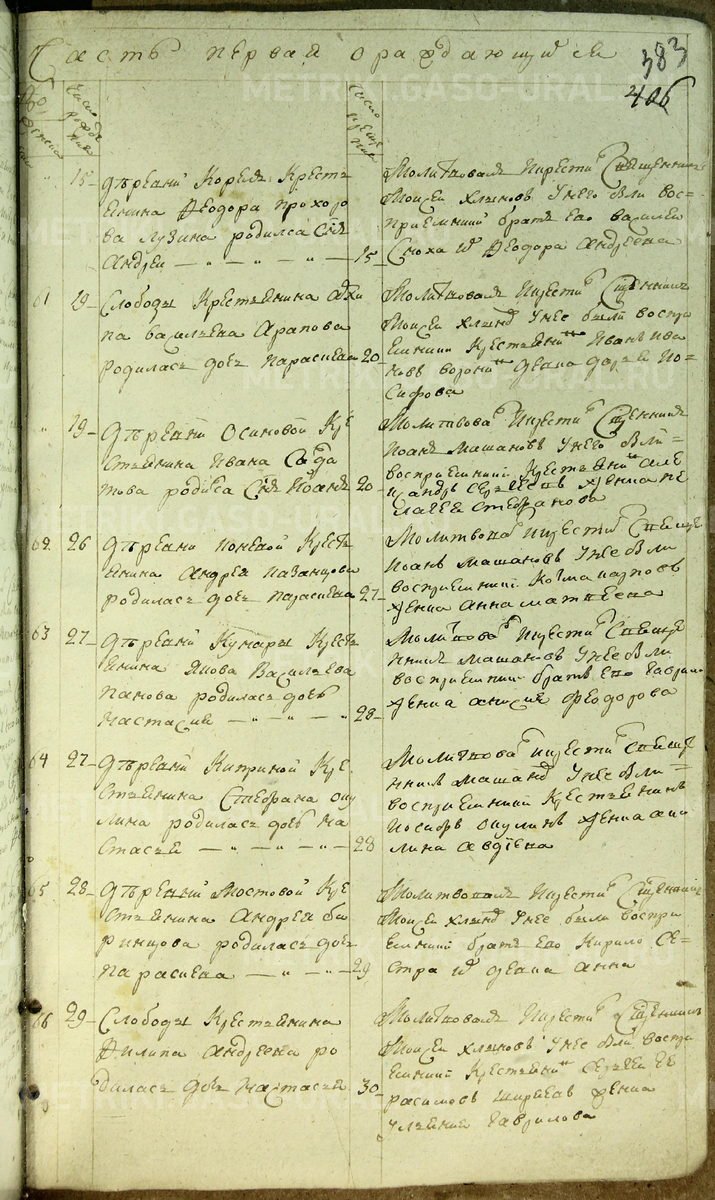 Часть первая о раждающихся
383
406
METRIKI.GASO-URAL.RU
Число рожде ния
Число креще ния
15
дѣревни Корелъ Кресть
янина Феодора прохоро
ва лузина родился сынъ
Андреи
15
Молитвовалъ и крестилъ священникъ
Моисеи хлыновъ Унего были вос
приемники братъ его василеи
сноха их Феодора Андреева
61 19
Слободы Крестьянина
па васильева Арапова
родилась дочь параскева
20
Молитвовалъ и крестилъ священникъ
Моисеи хлыновъ Унее были воспри
емники Крестьянинъ Иванъ ива
новъ девка дарья Ио
сифова
19
дѣревни Осиновой Кре
стьянина Ивана
това родился сынъ Иоаннъ
20
Молитвовалъ и крестилъ священникъ
Иоаннъ Машановъ Унего были
восприемники Крестьянинъ але
ксандръ женка пе
лагея стефанова
62 26
дѣревни Кресть
янина Андрея казанцова
родилась дочь параскева
27
Молитвовалъ и крестилъ священникъ
Иоаннъ машановъ Унее были
восприемники Козма карповъ
женка анна матвеева
63 27
дѣревни Кунары Кресть
янина Якова Васильева
панова родилась дочь
Настасия
28
Молитвовалъ и крестилъ священ
никъ машановъ Унее были
восприемники братъ его гаврило
женка анисия феодорова
64 27
дѣревни Киприной Кре
стьянина Стефана оку
лина родилась дочь На
стасья
28
Молитвовалъ и крестилъ священ
никъ машановъ Унее были
восприемники Крестьянинъ
Иосифъ окулинъ женка аки
лина авдеева
65 28
дѣревни Мостовой Кре
стьянина Андрея
родилась дочь
параскева
29
Молитвовалъ и крестилъ священникъ
Моисеи хлыновъ Унее были воспри
емники братъ его Кирило се
стра их девка анна
66 29
Слободы Крестьянина
Филипа Андреева ро
дилась дочь Настасья
30
Молитвовалъ и крестилъ священникъ
Моисеи хлыновъ Унее были воспри
емники Крестьянинъ Сергеи ге
расимовъ женка
улья­ния гаврилова